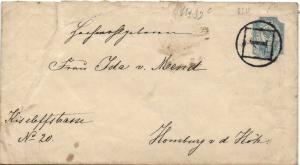 Hochwohlgeboren
Frau Ida v. Mend
Kiseleffstrasse
No 20.
Homburg v d Höh.